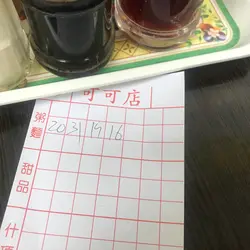 可可店
粥麵 203 19 16
甜品
什